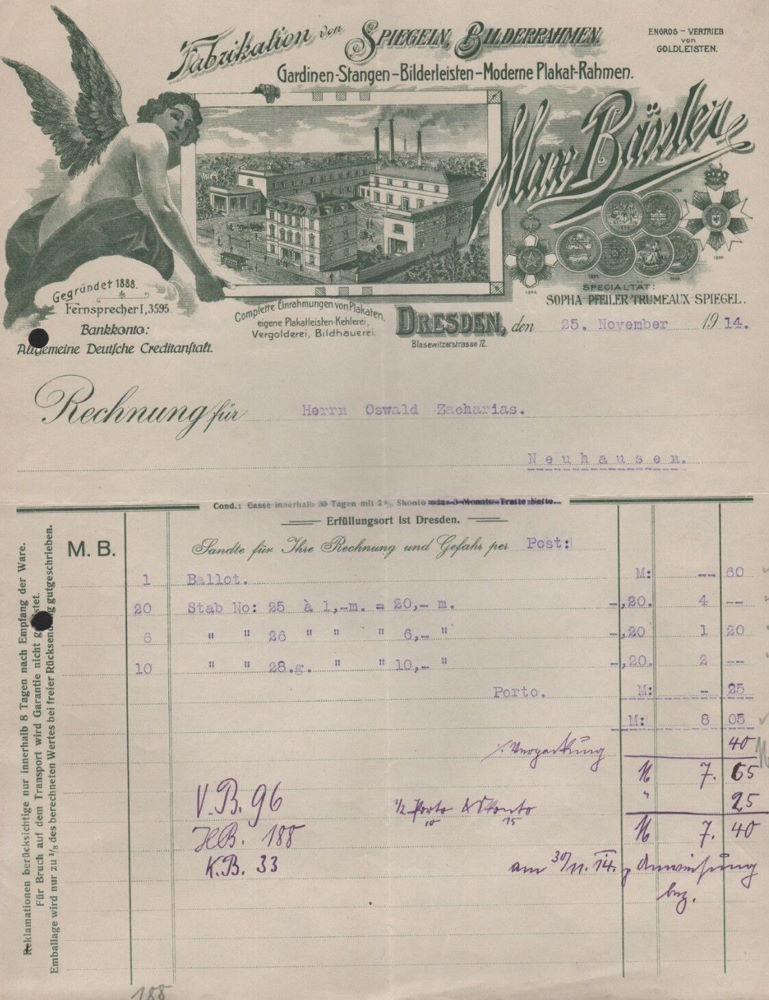 Fabrikation von Spiegeln, Bilderrahmen.
Gardinen-Stangen-Bilderleisten-Moderne Plakat-Rahmen.
ENGROS - VERTRIEB
von
GOLDLEISTEN.
Gegründet 1888.
Fernsprecher I, 3595.
Bankkonto:
Allgemeine Deutsche Creditanstalt.
Complette Einrahmungen von Plakaten,
eigene Plakatleisten-Kehlerei,
Vergolderei, Bildhauerei.
SPECIALTÄT:
SOPHA PFEILER TRUMEAUX SPIEGEL.
DRESDEN, den 25. November 1914.
Blasewitzerstrasse 72.
Rechnung für Herrn Oswald Zacharias.
Neuhausen.
Cond.: Casse innerhalb 30 Tagen mit 2%, Skonto oder 3 Monats-Tratte Netto.
Erfüllungsort ist Dresden.
M. B. Sandte für Ihre Rechnung und Gefahr per Post:
1 Ballot. M: -- 60
20 Stab No: 25 à 1,-m. = 20,- m. -,20. 4 --
6 " " 26 " " " 6,- " -,20 1 20
10 " " 28.g. " " 10,- " -,20. 2 --
Porto. M: - 25
M: 8 05
Verpackung 40
M 7. 65
" 25
V.B. 96 ½ Porto & Skonto
10 15
M 7. 40
H.B. 188
K.B. 33 am 30/11. 14. Anweisung
bez.
188
Reklamationen berücksichtige nur innerhalb 8 Tagen nach Empfang der Ware.
Für Bruch auf dem Transport wird Garantie nicht geleistet.
Emballage wird nur zu ²/₃ des berechneten Wertes bei freier Rücksendung gutgeschrieben.